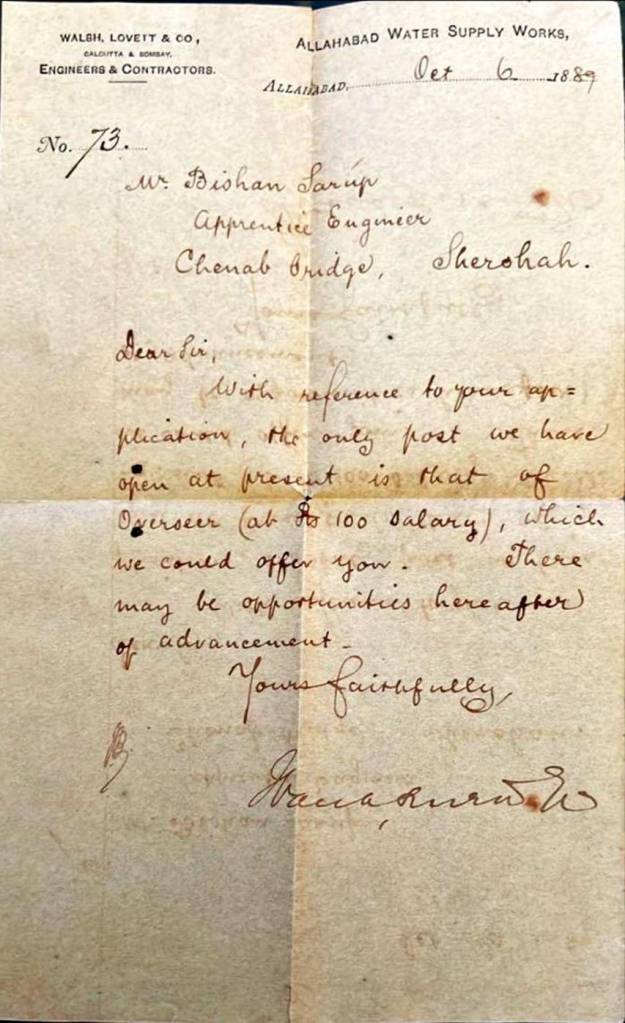 WALSH, LOVETT & CO,
CALCUTTA & BOMBAY,
ENGINEERS & CONTRACTORS.
ALLAHABAD WATER SUPPLY WORKS,
ALLAHABAD, Oct 6 1889
No. 73.
Mr. Bishan Sarúp
Apprentice Engineer
Chenab Bridge, Shershah.
Dear Sir,
With reference to your ap=
plication, the only post we have
open at present is that of
Overseer (at Rs 100 salary), which
we could offer you. There
may be opportunities hereafter
of advancement.
Yours faithfully,